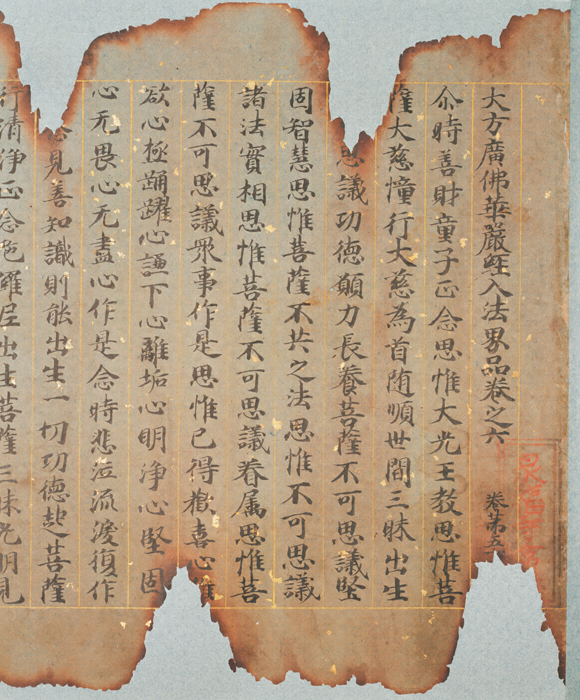 大方廣佛華嚴経入法界品卷之六 卷第五
尒時善財童子正念思惟大光王教思惟菩
薩大慈憧行大慈為首随順世間三昧出生
思議功德願力長養菩薩不可思議堅
固智慧思惟菩薩不共之法思惟不可思議
諸法實相思惟菩薩不可思議眷属思惟菩
薩不可思議眾事作是思惟已得歡喜心
欲心極踊躍心謙下心離垢心明淨心堅固
心无畏心无盡心作是念時悲泣流淚復作
心見善知識則能出生一切功德起菩薩
行清淨正念陁羅尼出生菩薩三昧光明見